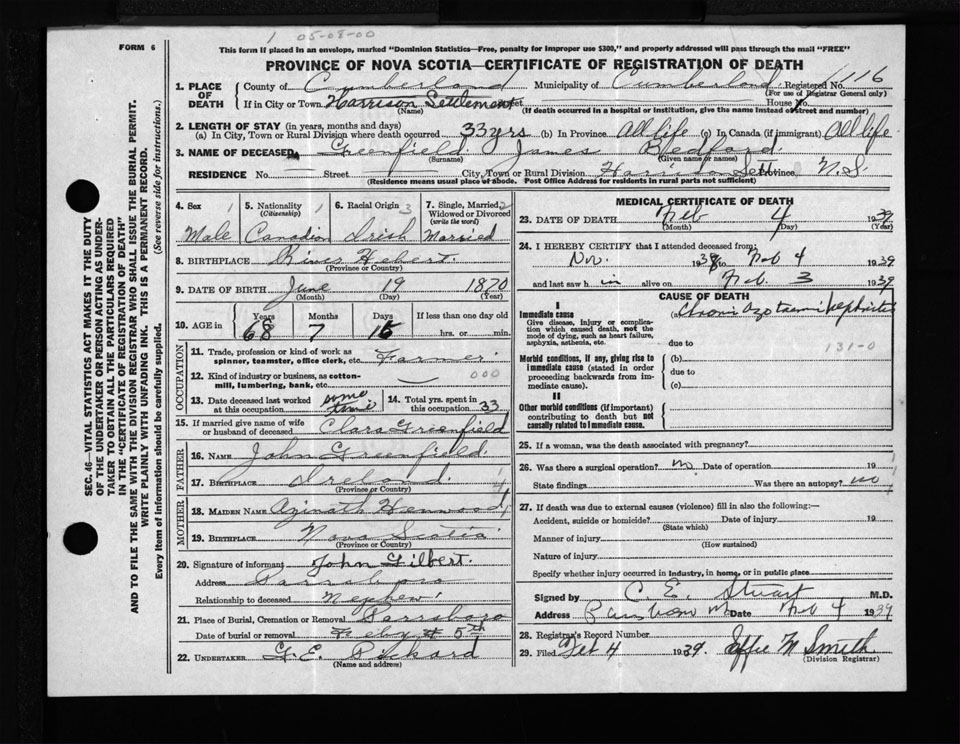 1 05-08-00
FORM 6
This form if placed in an envelope, marked "Dominion Statistics—Free, penalty for improper use $300," and properly addressed will pass through the mail "FREE"
PROVINCE OF NOVA SCOTIA—CERTIFICATE OF REGISTRATION OF DEATH
1. PLACE OF DEATH County of Cumberland Municipality of Cumberland Registered No. 116
(For use of Registrar General only)
If in City or Town Harrison Settlement Street House No.
(Name) (If death occurred in a hospital or institution, give the name instead of street and number)
2. LENGTH OF STAY (in years, months and days)
(a) In City, Town or Rural Division where death occurred 33 yrs (b) In Province All life (c) In Canada (if immigrant) All life
3. NAME OF DECEASED Greenfield James Bedford
(Surname) (Given name or names)
RESIDENCE No. — Street — City, Town or Rural Division Harrison Sett Province N.S.
(Residence means usual place of abode. Post Office Address for residents in rural parts not sufficient)
4. Sex 1 Male
5. Nationality (Citizenship) 1 Canadian
6. Racial Origin 3 Irish
7. Single, Married, Widowed or Divorced (write the word) 2 Married
8. BIRTHPLACE River Hebert
(Province or Country)
9. DATE OF BIRTH June 19 1870
(Month) (Day) (Year)
10. AGE in Years 68 Months 7 Days 15 If less than one day old
hrs. or min.
OCCUPATION
11. Trade, profession or kind of work as spinner, teamster, office clerk, etc. Farmer
12. Kind of industry or business, as cotton-mill, lumbering, bank, etc. — 000
13. Date deceased last worked at this occupation some time
14. Total yrs. spent in this occupation 33
15. If married give name of wife or husband of deceased Clara Greenfield
FATHER
16. NAME John Greenfield
17. BIRTHPLACE Ireland 4
(Province or Country)
MOTHER
18. MAIDEN NAME Henwood 1
19. BIRTHPLACE Nova Scotia
(Province or Country)
20. Signature of informant John Gilbert.
Address Parrsboro
Relationship to deceased Nephew
21. Place of Burial, Cremation or Removal Parrsboro
Date of burial or removal Feby 5th
22. UNDERTAKER G.E. Pickard
(Name and address)
MEDICAL CERTIFICATE OF DEATH
23. DATE OF DEATH Feb 4 1939
(Month) (Day) (Year)
24. I HEREBY CERTIFY that I attended deceased from:
Nov. 1938 to Feb 4 1939
and last saw h im alive on Feb. 3 1939
CAUSE OF DEATH
I
Immediate cause (a) Nephritis
Give disease, injury or complication which caused death, not the mode of dying, such as heart failure, asphyxia, asthenia, etc.
due to 131-0
Morbid conditions, if any, giving rise to immediate cause (stated in order proceeding backwards from immediate cause).
(b)
due to
(c)
II
Other morbid conditions (if important) contributing to death but not causally related to immediate cause.
25. If a woman, was the death associated with pregnancy?
26. Was there a surgical operation? no Date of operation 19
State findings Was there an autopsy? no
27. If death was due to external causes (violence) fill in also the following:—
Accident, suicide or homicide? Date of injury 19
(State which)
Manner of injury
(How sustained)
Nature of injury
Specify whether injury occurred in industry, in home, or in public place
Signed by C. E. Stuart M.D.
Address Date Feb 4 1939
28. Registrar's Record Number
29. Filed Feb 4 1939. Effie M Smith
(Division Registrar)
SEC. 46—VITAL STATISTICS ACT MAKES IT THE DUTY
OF THE UNDERTAKER OR PERSON ACTING AS UNDER-
TAKER TO OBTAIN ALL THE PARTICULARS REQUIRED
IN THE "CERTIFICATE OF REGISTRATION OF DEATH"
AND TO FILE THE SAME WITH THE DIVISION REGISTRAR WHO SHALL ISSUE THE BURIAL PERMIT.
WRITE PLAINLY WITH UNFADING INK. THIS IS A PERMANENT RECORD.
Every item of information should be carefully supplied. (See reverse side for instructions.)